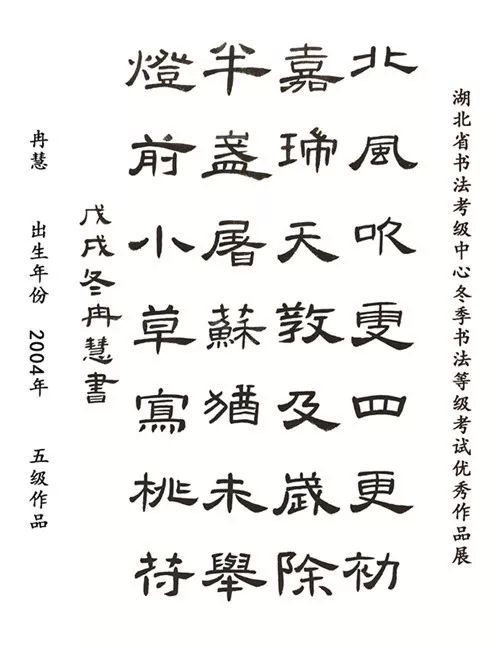 湖北省书法考级中心冬季书法等级考试优秀作品展
北風吹雪四更初
嘉瑞天教及歲除
半盞屠蘇猶未舉
燈前小草寫桃符
戊戌冬冉慧書
冉慧 出生年份 2004年 五级作品